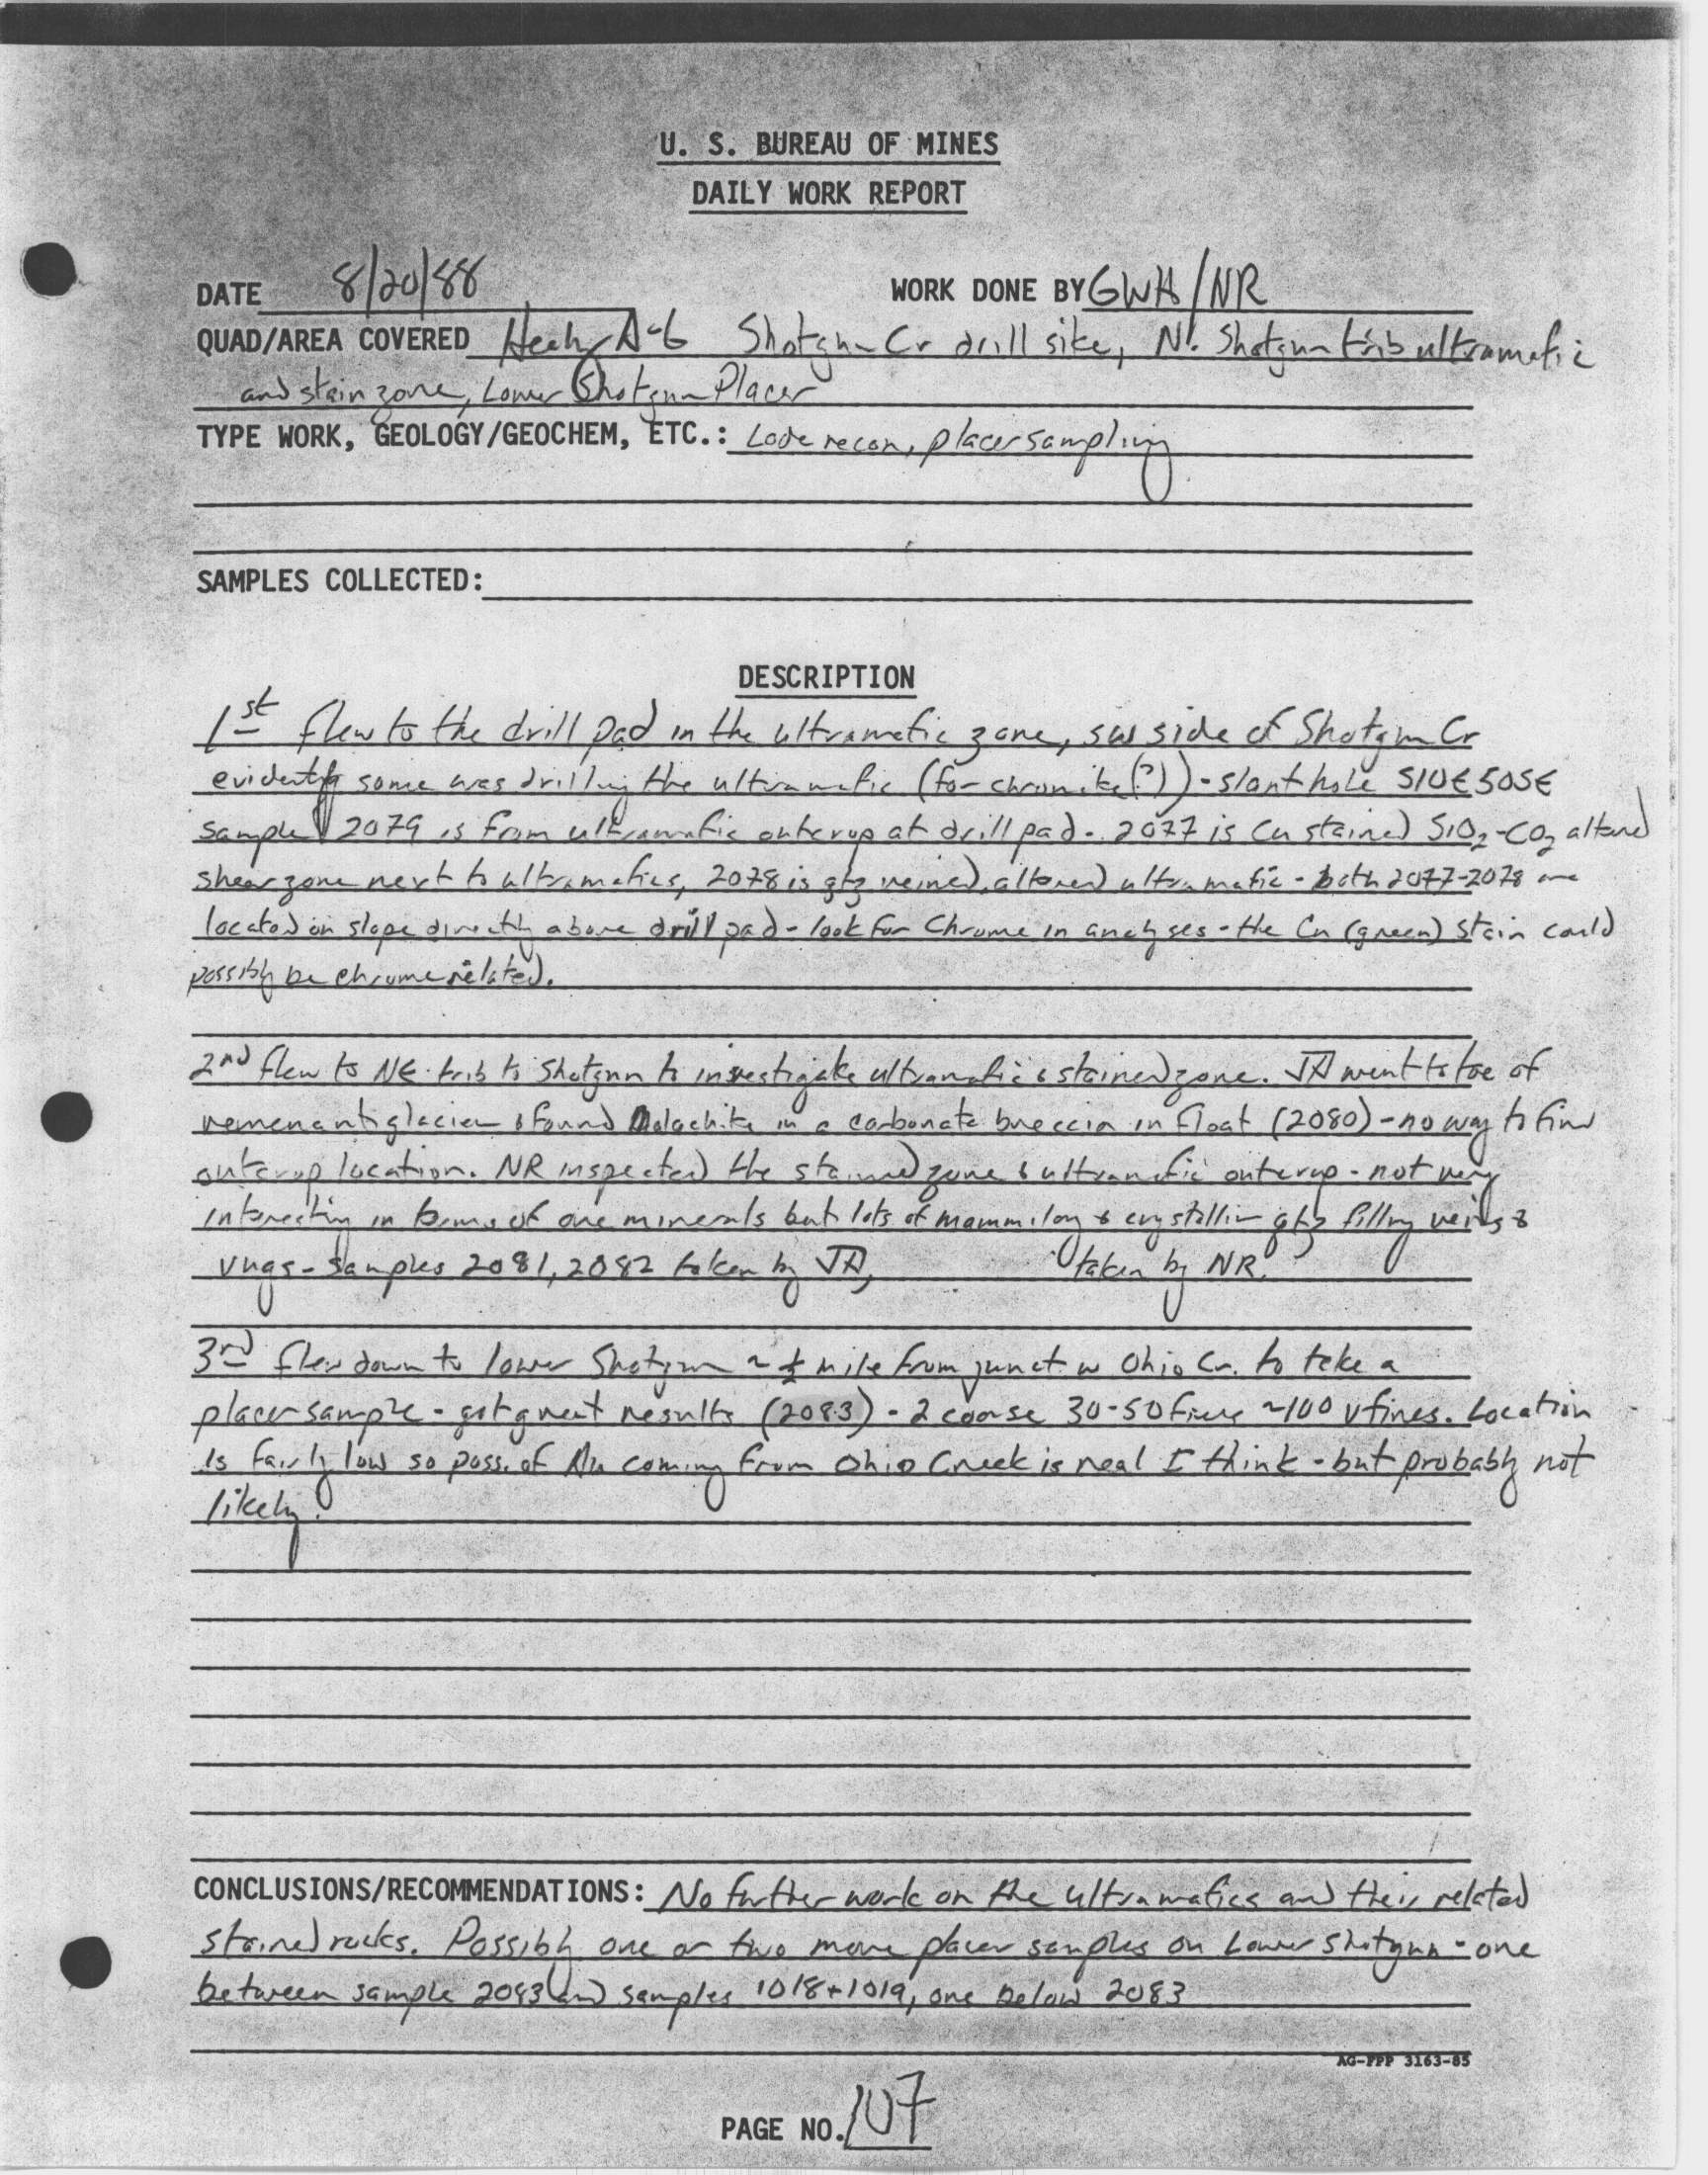 U. S. BUREAU OF MINES
DAILY WORK REPORT
DATE 8/20/88 WORK DONE BY GWH/NR
QUAD/AREA COVERED Healy A-6 Shotgun Cr drill site, N. Shotgun trib ultramafic
and stain zone, Lower Shotgun Placer
TYPE WORK, GEOLOGY/GEOCHEM, ETC.: Lode recon, placer sampling
SAMPLES COLLECTED:
DESCRIPTION
1st flew to the drill pad in the ultramafic zone, sw side of Shotgun Cr
evidently some was drilling the ultramafic (for chromite(?)) - slant hole S10E50SE
sample 2079 is from ultramafic outcrop at drill pad - 2077 is Cu stained SiO2-CO2 altered
shear zone next to ultramafics, 2078 is qtz veined, altered ultramafic - both 2077-2078 are
located on slope directly above drill pad - look for Chrome in analyses - the Cu (green) stain could
possibly be chrome related.
2nd flew to NE trib to Shotgun to investigate ultramafic & stained zone. JA went to toe of
remenant glacier & found Malachite in a carbonate breccia in float (2080) - no way to find
outcrop location. NR inspected the stained zone & ultramafic outcrop - not very
interesting in terms of ore minerals but lots of mammilary & crystallin qtz filling veins &
vugs - samples 2081, 2082 taken by JA, taken by NR.
3rd flew down to lower Shotgun ~ ½ mile from junct w Ohio Cr. to take a
placer sample - got great results (2083) - 2 coarse 30-50 fines ~100 v fines. Location
is fairly low so poss. of Au coming from Ohio Creek is real I think - but probably not
likely.
CONCLUSIONS/RECOMMENDATIONS: No further work on the ultramafics and their related
stained rocks. Possibly one or two more placer samples on Lower Shotgun - one
between sample 2083 and samples 1018+1019, one below 2083
AG-FPP 3163-85
PAGE NO. 107